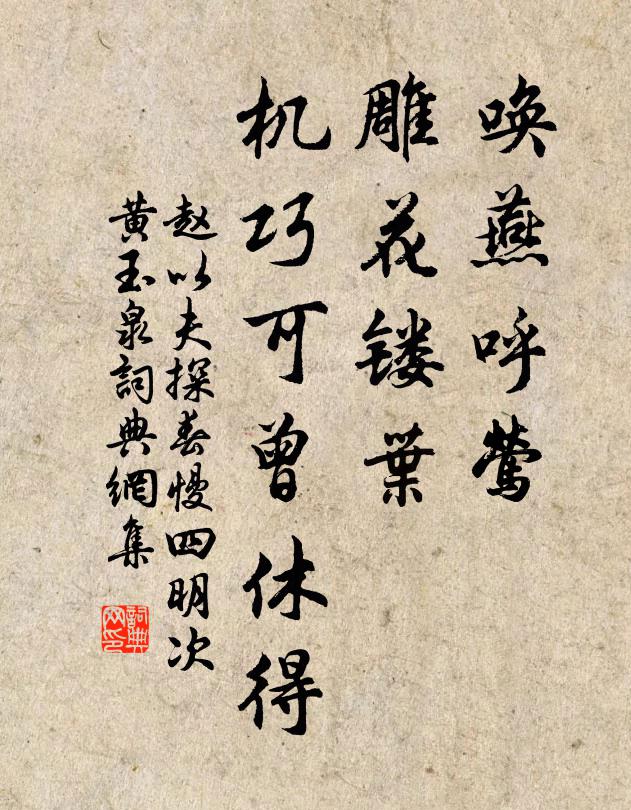 唤燕呼莺
雕花镂葉
机巧可曾休得
赵以夫探春慢四明次
黄玉泉詞典網集
詞典网印